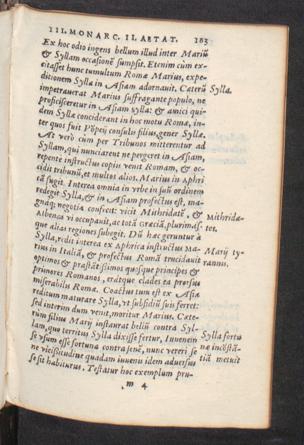 III. MONARC. II. AETAT. 103
Ex hoc odio ingens bellum illud inter Mariũ
& Syllam occasionẽ sumpsit. Etenim cùm ex-
citasset hunc tumultum Romæ Marius, expe-
ditionem Sylla in Asiam adornauit. Caterũ Sylla.
impetrauerat Marius suffragante populo, ne
proficisceretur in Asiam sylla: & amici qui-
dem Syllæ conciderant in hoc motu Romæ, in-
ter quos fuit Põpeij consulis filius, gener Syllæ.
At verò cùm per Tribunos mitterentur ad
Syllam, qui nunciarent ne pergeret in Asiam,
repente instructus copijs venit Romam, & oc-
cidit tribunũ, et multos alios. Marius in Aphri
cã fugit. Interea omnia in vrbe in suũ ordinem
redegit Sylla, & in Asiam profectus est, ma-
gnaq; negotia confecit: vicit Mithridatẽ, & Mithrida-
Albenga vi occupauit, ac totã græciã, plurimas- tes.
que alias regiones subegit. Dũ hæc geruntur à
Sylla, redit interea ex Aphrica instructus Ma- Marij ty-
rius in Italiã, & profectus Romã trucidauit rannis.
optimos & præstãtissimos quosque principes &
primores Romanos, eratque clades ea prorsus
miserabilis Romæ. Coactus tum est ex Asia
reditum maturare Sylla, vt subsidiũ suis ferret:
sed interim dum venit, moritur Marius. Cæte-
rùm filius Marij instaurat bellũ contra Syl-
lam, quo territus Sylla dixisse fertur, Iuuenem Sylla fortu
se vsum esse fortuna contra senẽ, nunc vereri se næ incõstã-
ne vicissitudine quadam iuuenis idem aduersus tiã metuit
se sit habiturus. Testatur hoc exemplum pru-
m 4